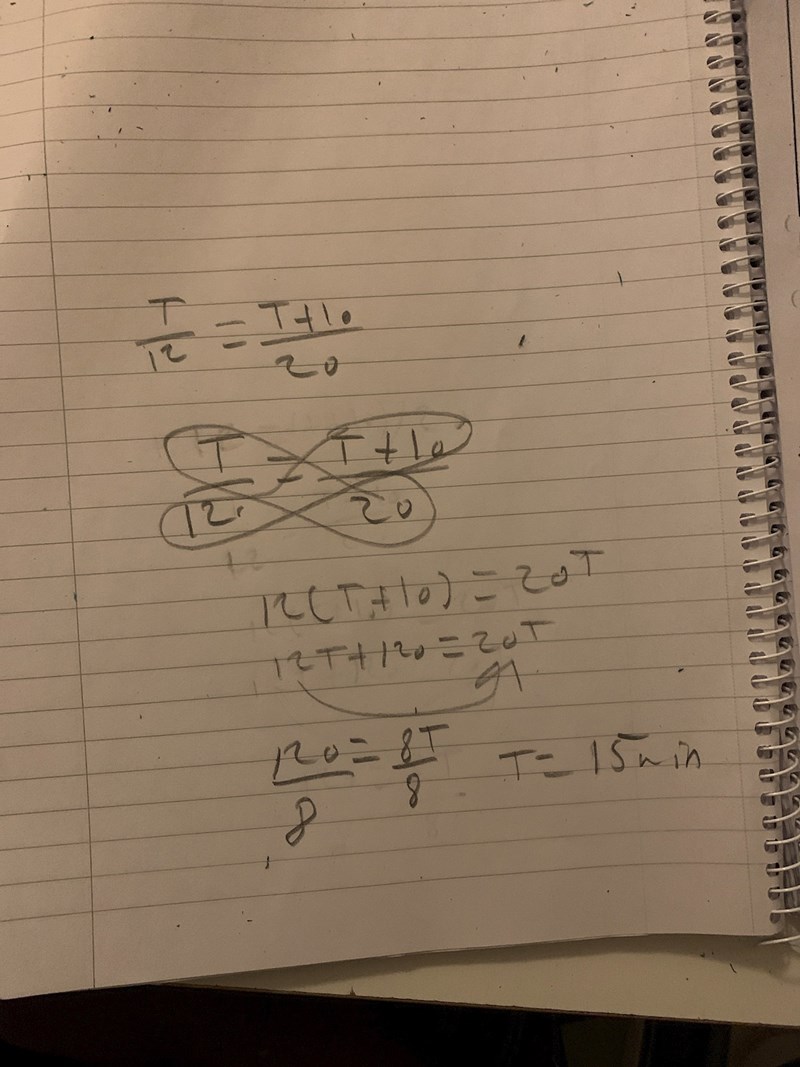 T/12 = T+10/20
T/12 = T+10/20
12(T+10) = 20T
12T+120=20T
120/8 = 8T/8 T = 15min